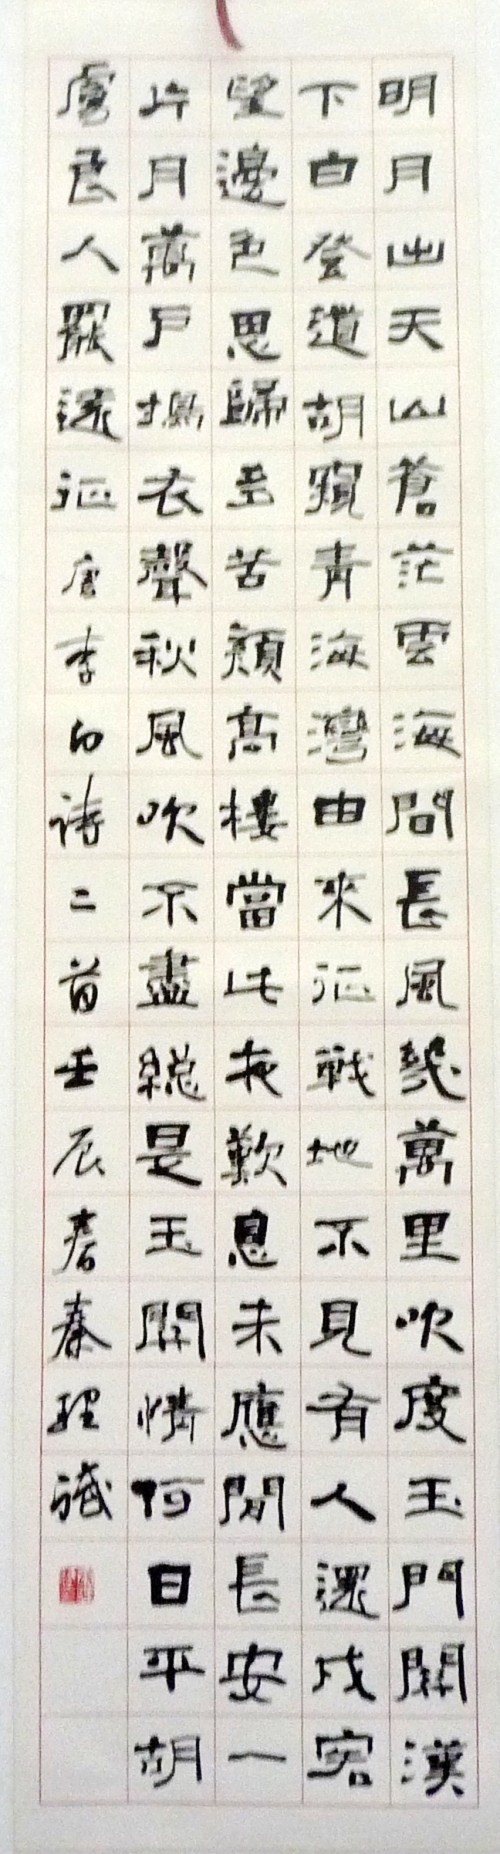 明月出天山蒼茫雲海間長風幾萬里吹度玉門關漢
下白登道胡窺青海灣由來征戰地不見有人還戍客
望邊色思歸多苦顏高樓當此夜歎息未應閒長安一
片月萬戶搗衣聲秋風吹不盡總是玉關情何日平胡
虜良人罷遠征唐李白詩二首壬辰春秦